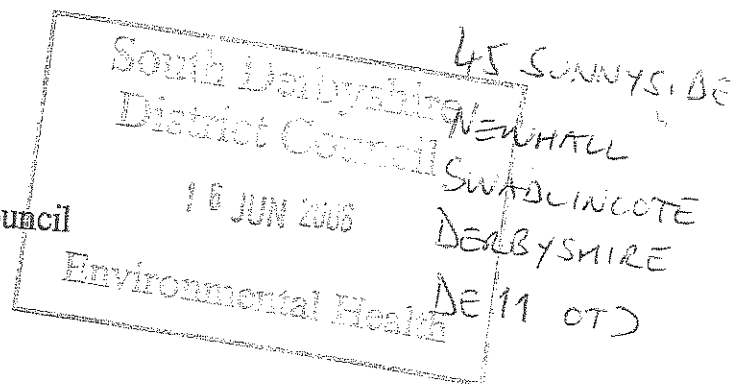 South Derbyshire
District Council
16 JUN 2006
Environmental Health
uncil
45 SUNNYSIDE
NEWHALL
SWADLINCOTE
DERBYSHIRE
DE11 0TD